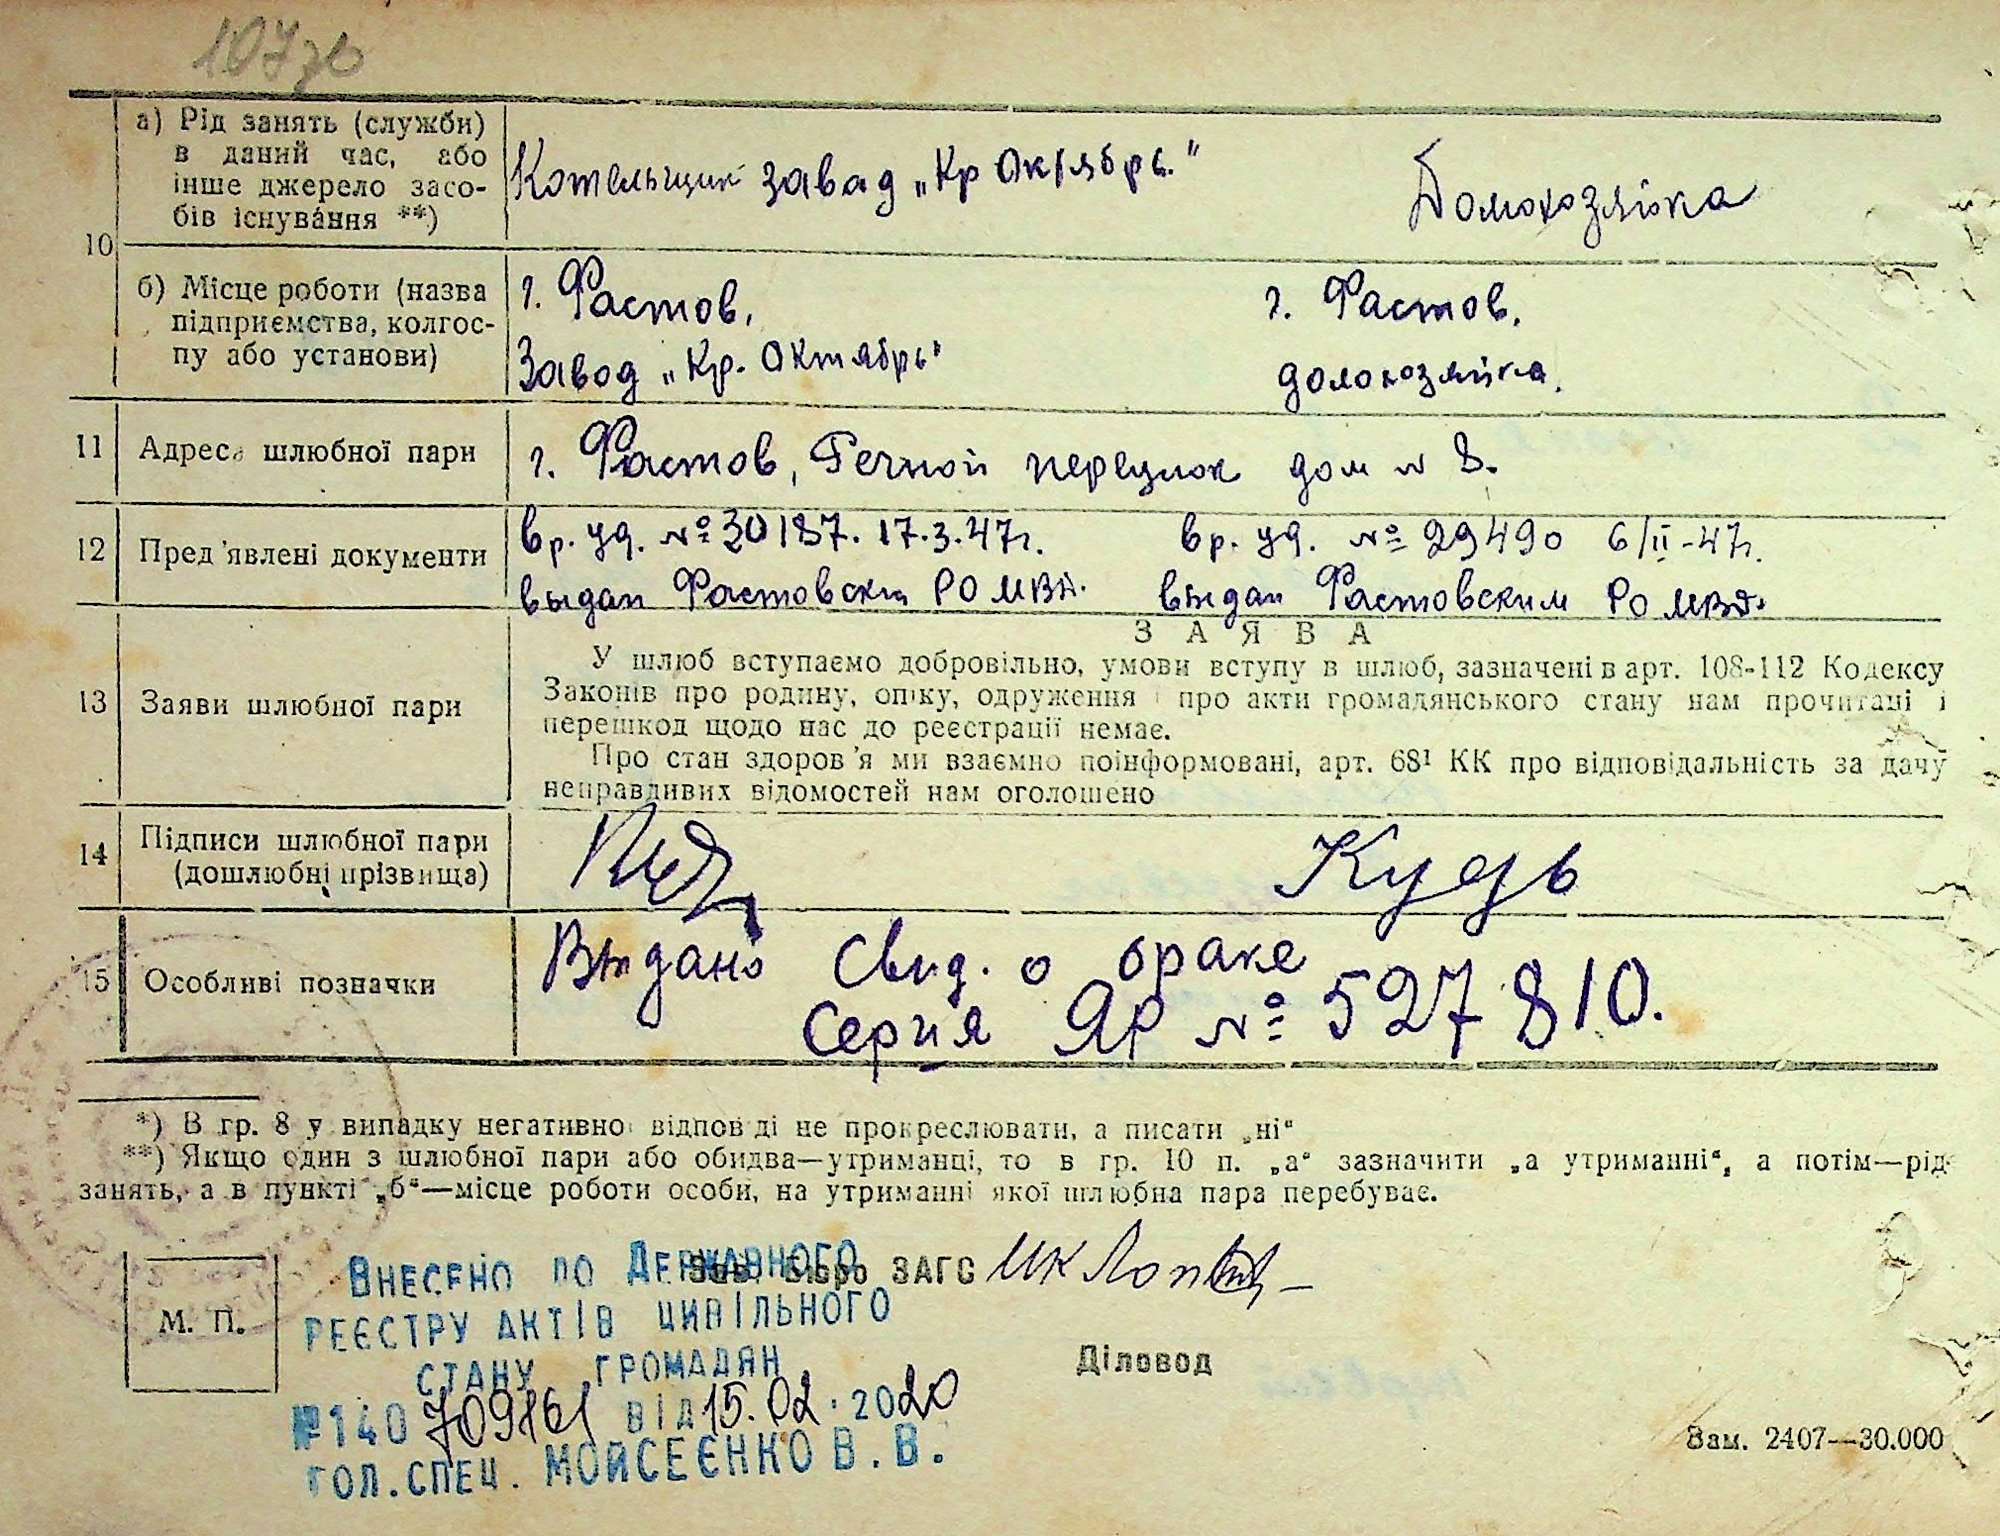 107зв
10
а) Рід занять (служби)
в даний час, або
інше джерело засо-
бів існування **)
Котельщик завад „Кр Октябрь."
Домохозяйка
б) Місце роботи (назва
підприємства, колгос-
пу або установи)
г. Фастов,
Завод „Кр. Октябрь"
г. Фастов,
домохозяйка.
11 Адреса шлюбної пари
г. Фастов, Речной переулок дом № 8.
12 Пред'явлені документи
вр. уд. № 30187. 17.3.47г.
выдан Фастовским РО МВД.
вр. уд. № 29490 6/II-47г.
выдан Фастовским РО МВД.
13 Заяви шлюбної пари
ЗАЯВА
У шлюб вступаємо добровільно, умови вступу в шлюб, зазначені в арт. 108-112 Кодексу
Законів про родину, опіку, одруження і про акти громадянського стану нам прочитані і
перешкод щодо нас до реєстрації немає.
Про стан здоров'я ми взаємно поінформовані, арт. 68¹ КК про відповідальність за дачу
неправдивих відомостей нам оголошено
14 Підписи шлюбної пари
(дошлюбні прізвища)
Кудь
15 Особливі позначки
Выдано Свид. о браке
Серия ЯР № 527810.
*) В гр. 8 у випадку негативної відповіді не прокреслювати, а писати „ні"
**) Якщо один з шлюбної пари або обидва—утриманці, то в гр. 10 п. „а" зазначити „а утриманні", а потім—рід
занять, а в пункті „б"—місце роботи особи, на утриманні якої шлюбна пара перебуває.
М. П.
Зав. Бюро ЗАГС
Діловод
Внесено до Державного
реєстру актів цивільного
стану громадян
№140709161 від 15.02.2020
гол.спец. Мойсеєнко В.В.
Зам. 2407—30.000